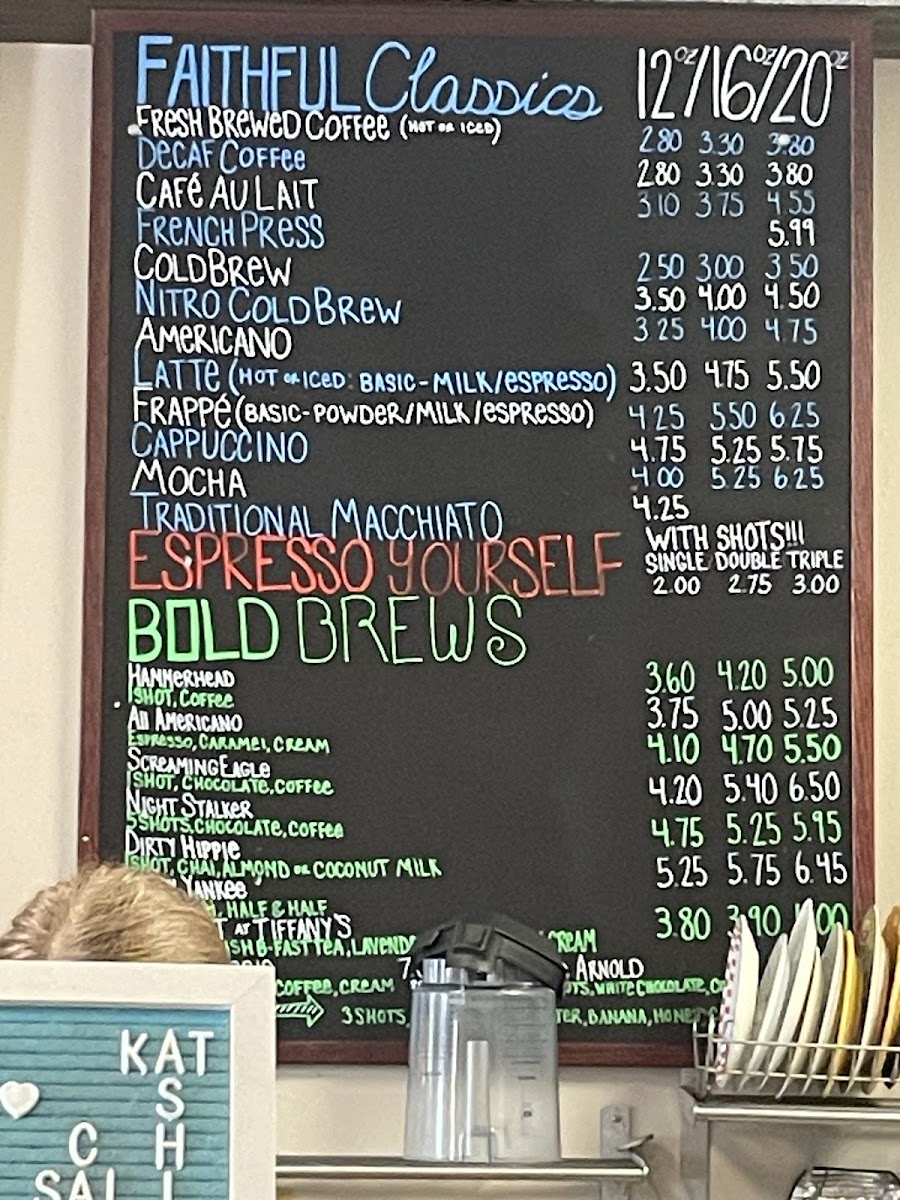 FAITHFUL Classics 12oz/16oz/20oz
FRESH BREWED COFFEE (HOT OR ICED) 2.80 3.30 3.80
DECAF COFFEE 2.80 3.30 3.80
CAFÉ AU LAIT 3.10 3.75 4.55
FRENCH PRESS 5.99
COLD BREW 2.50 3.00 3.50
NITRO COLD BREW 3.50 4.00 4.50
AMERICANO 3.25 4.00 4.75
LATTE (HOT OR ICED: BASIC-MILK/ESPRESSO) 3.50 4.75 5.50
FRAPPÉ (BASIC-POWDER/MILK/ESPRESSO) 4.25 5.50 6.25
CAPPUCCINO 4.75 5.25 5.75
MOCHA 4.00 5.25 6.25
TRADITIONAL MACCHIATO 4.25
ESPRESSO YOURSELF WITH SHOTS!!!
SINGLE DOUBLE TRIPLE
2.00 2.75 3.00
BOLD BREWS
HAMMERHEAD 3.60 4.20 5.00
1 SHOT, COFFEE
All AMERICANO 3.75 5.00 5.25
ESPRESSO, CARAMEL, CREAM 4.10 4.70 5.50
SCREAMING EAGLE
1 SHOT, CHOCOLATE, COFFEE 4.20 5.40 6.50
NIGHT STALKER
5 SHOTS, CHOCOLATE, COFFEE 4.75 5.25 5.95
DIRTY HIPPIE
1 SHOT, CHAI, ALMOND OR COCONUT MILK 5.25 5.75 6.45
YANKEE
HALF & HALF 3.80 3.90
AT TIFFANY'S
B-FAST TEA, CREAM
ARNOLD
COFFEE, CREAM WHITE CHOCOLATE,
3 SHOTS, BANANA,
KAT
S
C H
SAL I